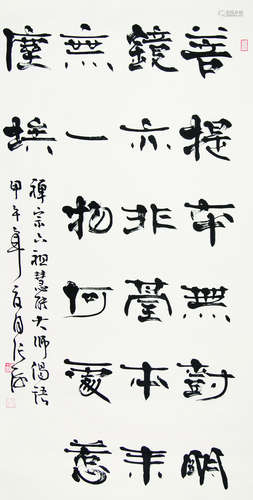 菩提本無樹明
鏡亦非臺本來
無一物何處惹
塵埃
禪宗六祖慧能大師偈語
甲午年夏月